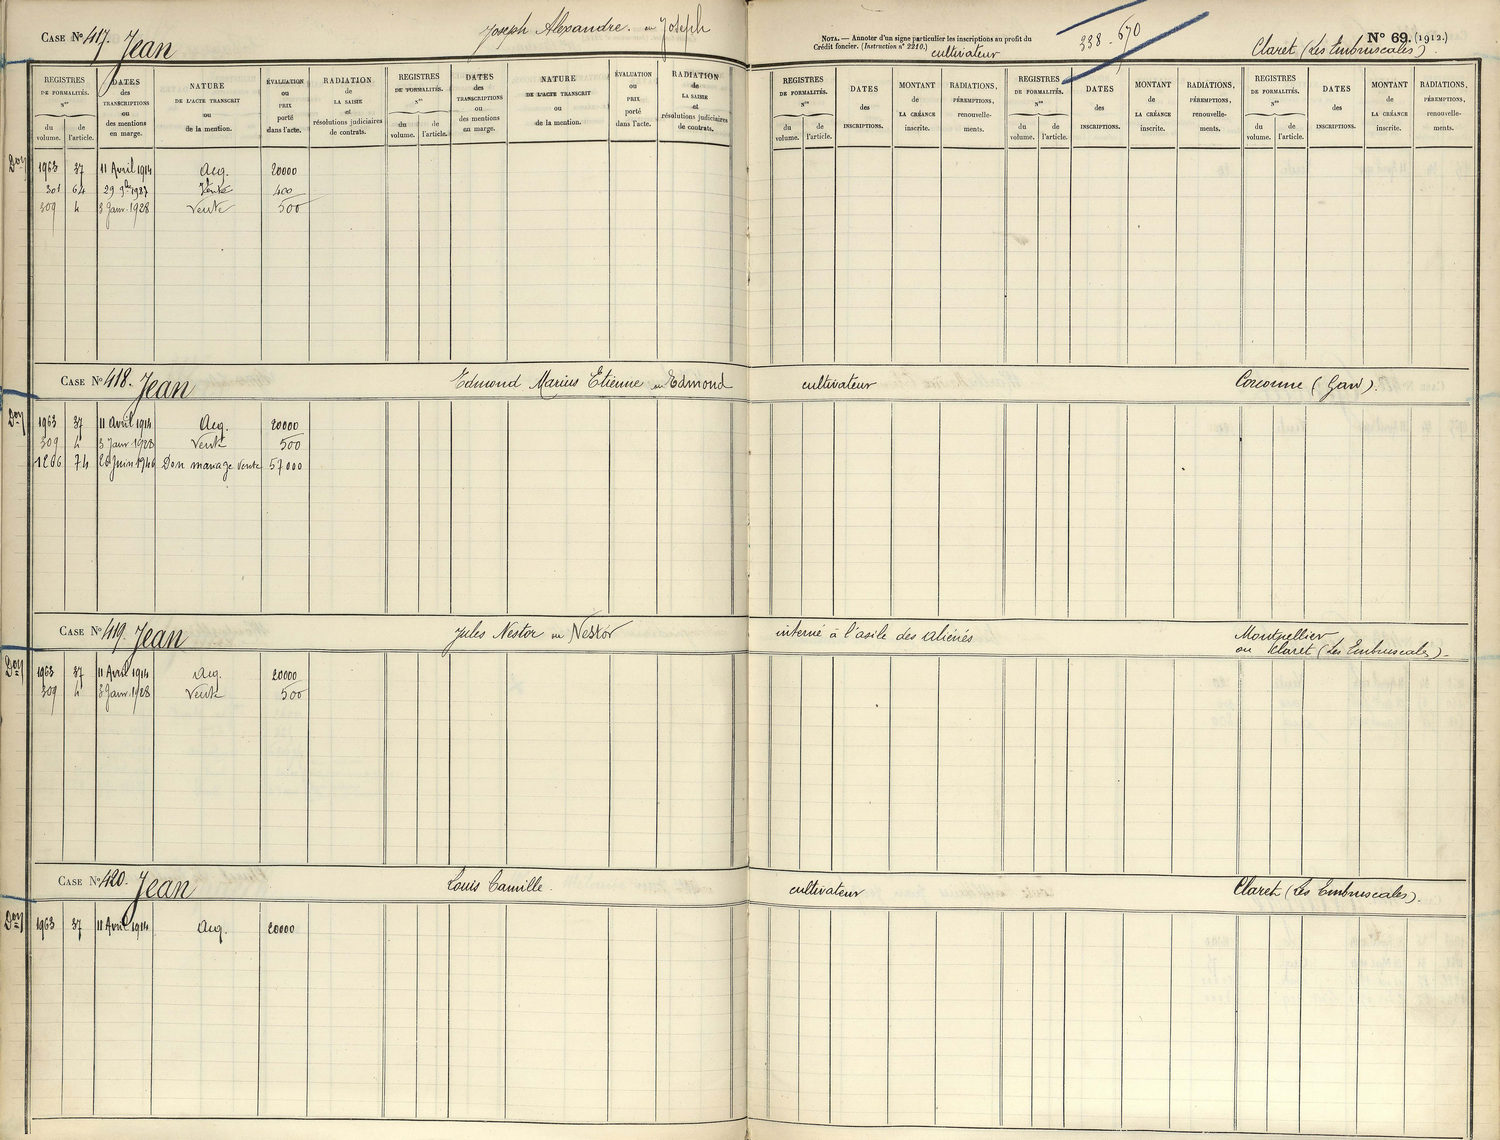 CASE N° 417. Jean Joseph Alexandre. ou Joseph
NOTA. — Annoter d'un signe particulier les inscriptions au profit du
Crédit foncier. (Instruction n° 2210.)
cultivateur
338 - 670
N° 69. (1912.)
Claret (Les Embruscales).
REGISTRES DE FORMALITÉS. Nos du volume. de l'article.
DATES des TRANSCRIPTIONS ou des mentions en marge.
NATURE DE L'ACTE TRANSCRIT ou de la mention.
ÉVALUATION ou PRIX porté dans l'acte.
RADIATION de LA SAISIE et résolutions judiciaires de contrats.
REGISTRES DE FORMALITÉS. Nos du volume. de l'article.
DATES des TRANSCRIPTIONS ou des mentions en marge.
NATURE DE L'ACTE TRANSCRIT ou de la mention.
ÉVALUATION ou PRIX porté dans l'acte.
RADIATION de LA SAISIE et résolutions judiciaires de contrats.
REGISTRES DE FORMALITÉS. Nos du volume. de l'article.
DATES des INSCRIPTIONS.
MONTANT de LA CRÉANCE inscrite.
RADIATIONS, PÉREMPTIONS, renouvelle-ments.
REGISTRES DE FORMALITÉS. Nos du volume. de l'article.
DATES des INSCRIPTIONS.
MONTANT de LA CRÉANCE inscrite.
RADIATIONS, PÉREMPTIONS, renouvelle-ments.
REGISTRES DE FORMALITÉS. Nos du volume. de l'article.
DATES des INSCRIPTIONS.
MONTANT de LA CRÉANCE inscrite.
RADIATIONS, PÉREMPTIONS, renouvelle-ments.
1963 37 11 Avril 1914 Acq. 20000
301 64 29 9bre 1927 Vente 400
309 4 3 Janv. 1928 Vente 500
CASE N° 418. Jean Edmond Marius Etienne ou Edmond cultivateur Corconne (Gard).
1963 37 11 Avril 1914 Acq. 20000
309 4 3 Janv 1928 Vente 500
1266 74 26 Juin 1946 Don manage Vente 57000
CASE N° 419. Jean Jules Nestor ou Nestor interné à l'asile des aliénés Montpellier
ou Claret (Les Embruscales).
1963 37 11 Avril 1914 Acq. 20000
309 4 3 Janv. 1928 Vente 500
CASE N° 420. Jean Louis Camille. cultivateur Claret (Les Embruscales).
1963 37 11 Avril 1914 Acq. 20000